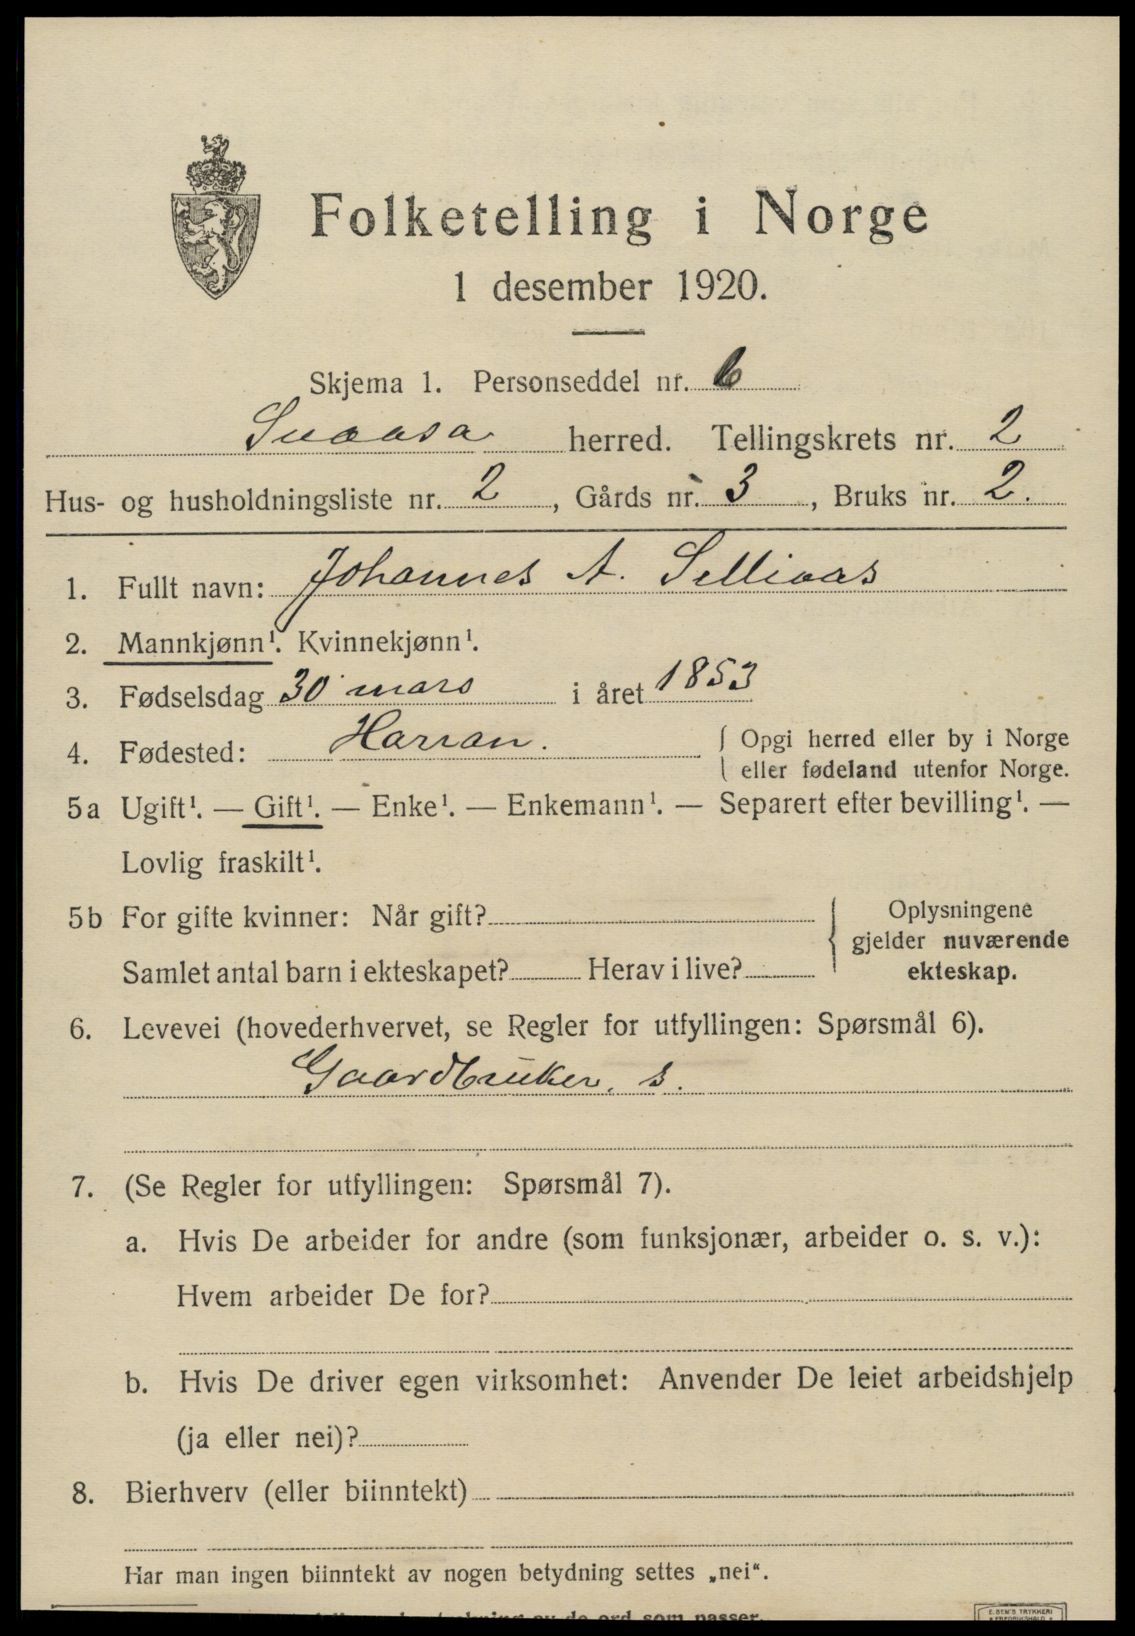 Folketelling i Norge
1 desember 1920.
Skjema 1. Personseddel nr. 6
Snaasa herred. Tellingskrets nr. 2
Hus- og husholdningsliste nr. 2, Gårds nr. 3, Bruks nr. 2.
1. Fullt navn: Johannes A. Selliaas
2. Mannkjønn¹. Kvinnekjønn¹.
3. Fødselsdag 30 mars i året 1853
4. Fødested: Harran. Opgi herred eller by i Norge
eller fødeland utenfor Norge.
5a Ugift¹. — Gift¹. — Enke¹. — Enkemann¹. — Separert efter bevilling¹. —
Lovlig fraskilt¹.
5b For gifte kvinner: Når gift? Oplysningene
gjelder nuværende
Samlet antal barn i ekteskapet? Herav i live? ekteskap.
6. Levevei (hovederhvervet, se Regler for utfyllingen: Spørsmål 6).
Gaardbruker. s.
7. (Se Regler for utfyllingen: Spørsmål 7).
a. Hvis De arbeider for andre (som funksjonær, arbeider o. s. v.):
Hvem arbeider De for?
b. Hvis De driver egen virksomhet: Anvender De leiet arbeidshjelp
(ja eller nei)?
8. Bierhverv (eller biinntekt)
Har man ingen biinntekt av nogen betydning settes „nei“.
av de ord som passer.
E. SEM'S TRYKKERI
FREDRIKSHALD